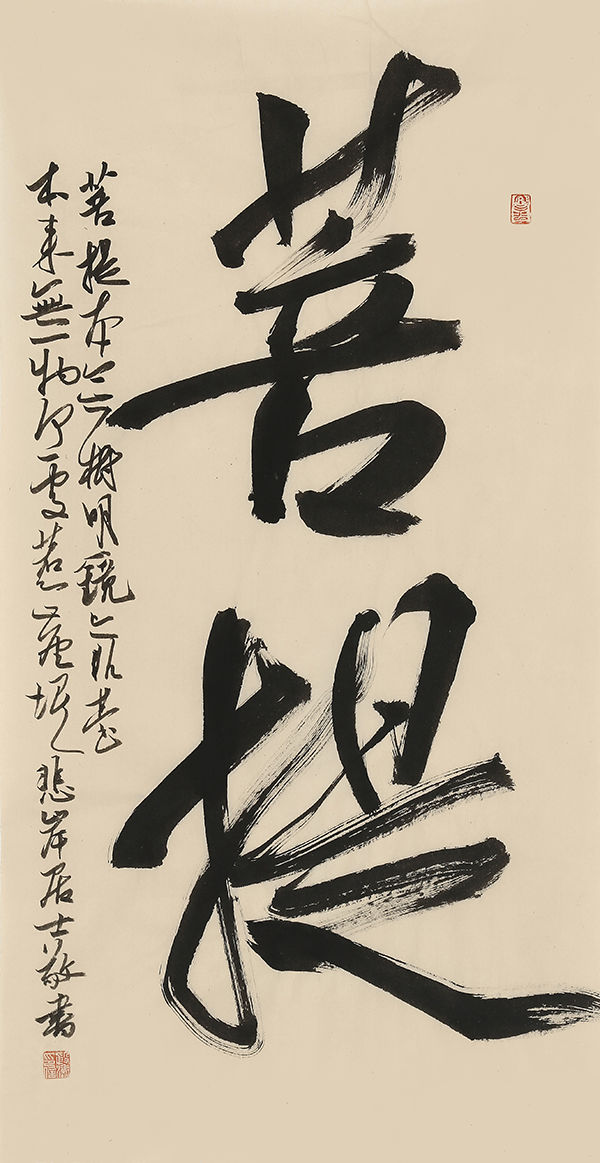 菩提
菩提本無樹明鏡亦非臺
本來無一物何處惹塵埃悲岸居士敬書